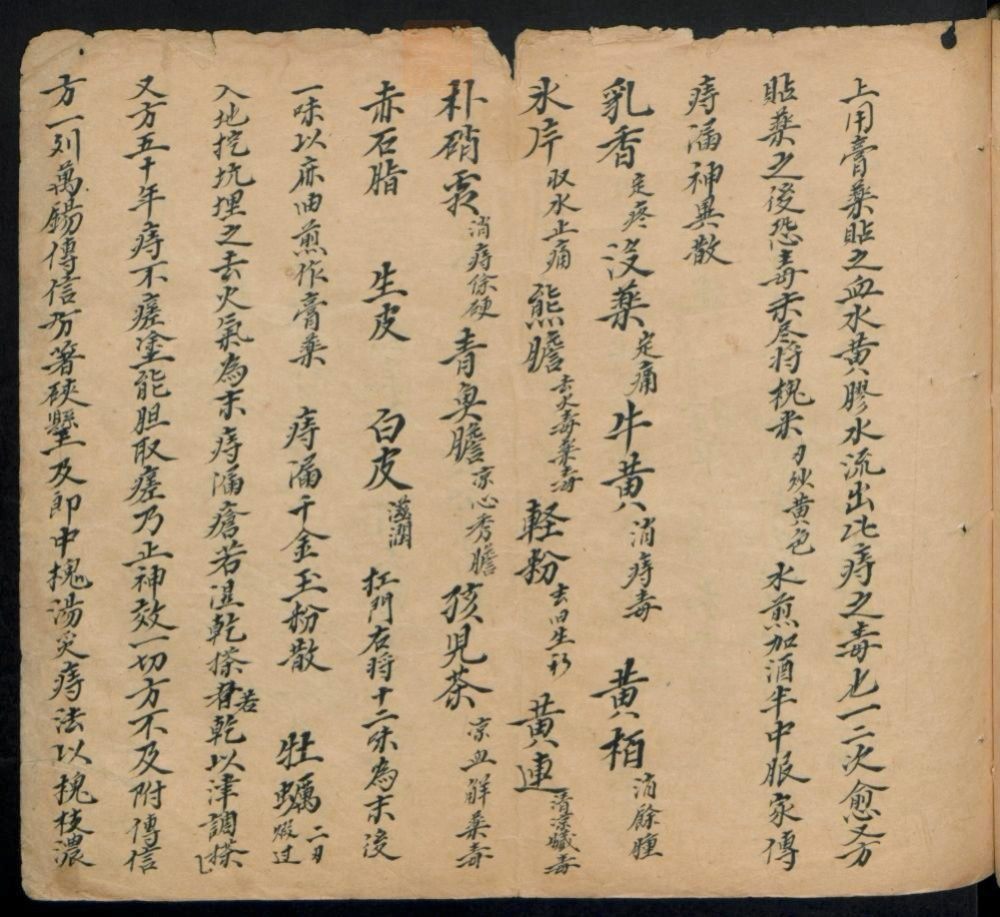 上用膏藥貼之血水黃膠水流出此痔之毒也一二次愈又方
貼藥之後恐毒未尽将槐米刀炒黃色水煎加酒半中服家傳
痔漏神異散
乳香定疼沒藥定痛牛黃消痔毒 黃栢消餘腫
氷片収水止痛熊膽去火毒藥毒 軽粉去旧生新 黃連清凉臓毒
朴硝霜消痔徐硬青魚膽凉心秀膽孩兒茶凉血解藥毒
赤石脂 生皮 白皮滋潤 扛門右将十二味為末後
一味以麻油煎作膏藥 痔漏千金玉粉散 牡蠣二刃煅过
入地挖坑埋之去火氣為末痔漏瘡若湿乾搽若乾以津調搽
又方五十年痔不瘥塗能胆取瘥乃止神效一切方不及附傳信
方一列萬錫傳信方著硤懸壁及郎中槐湯灸痔法以槐枝濃